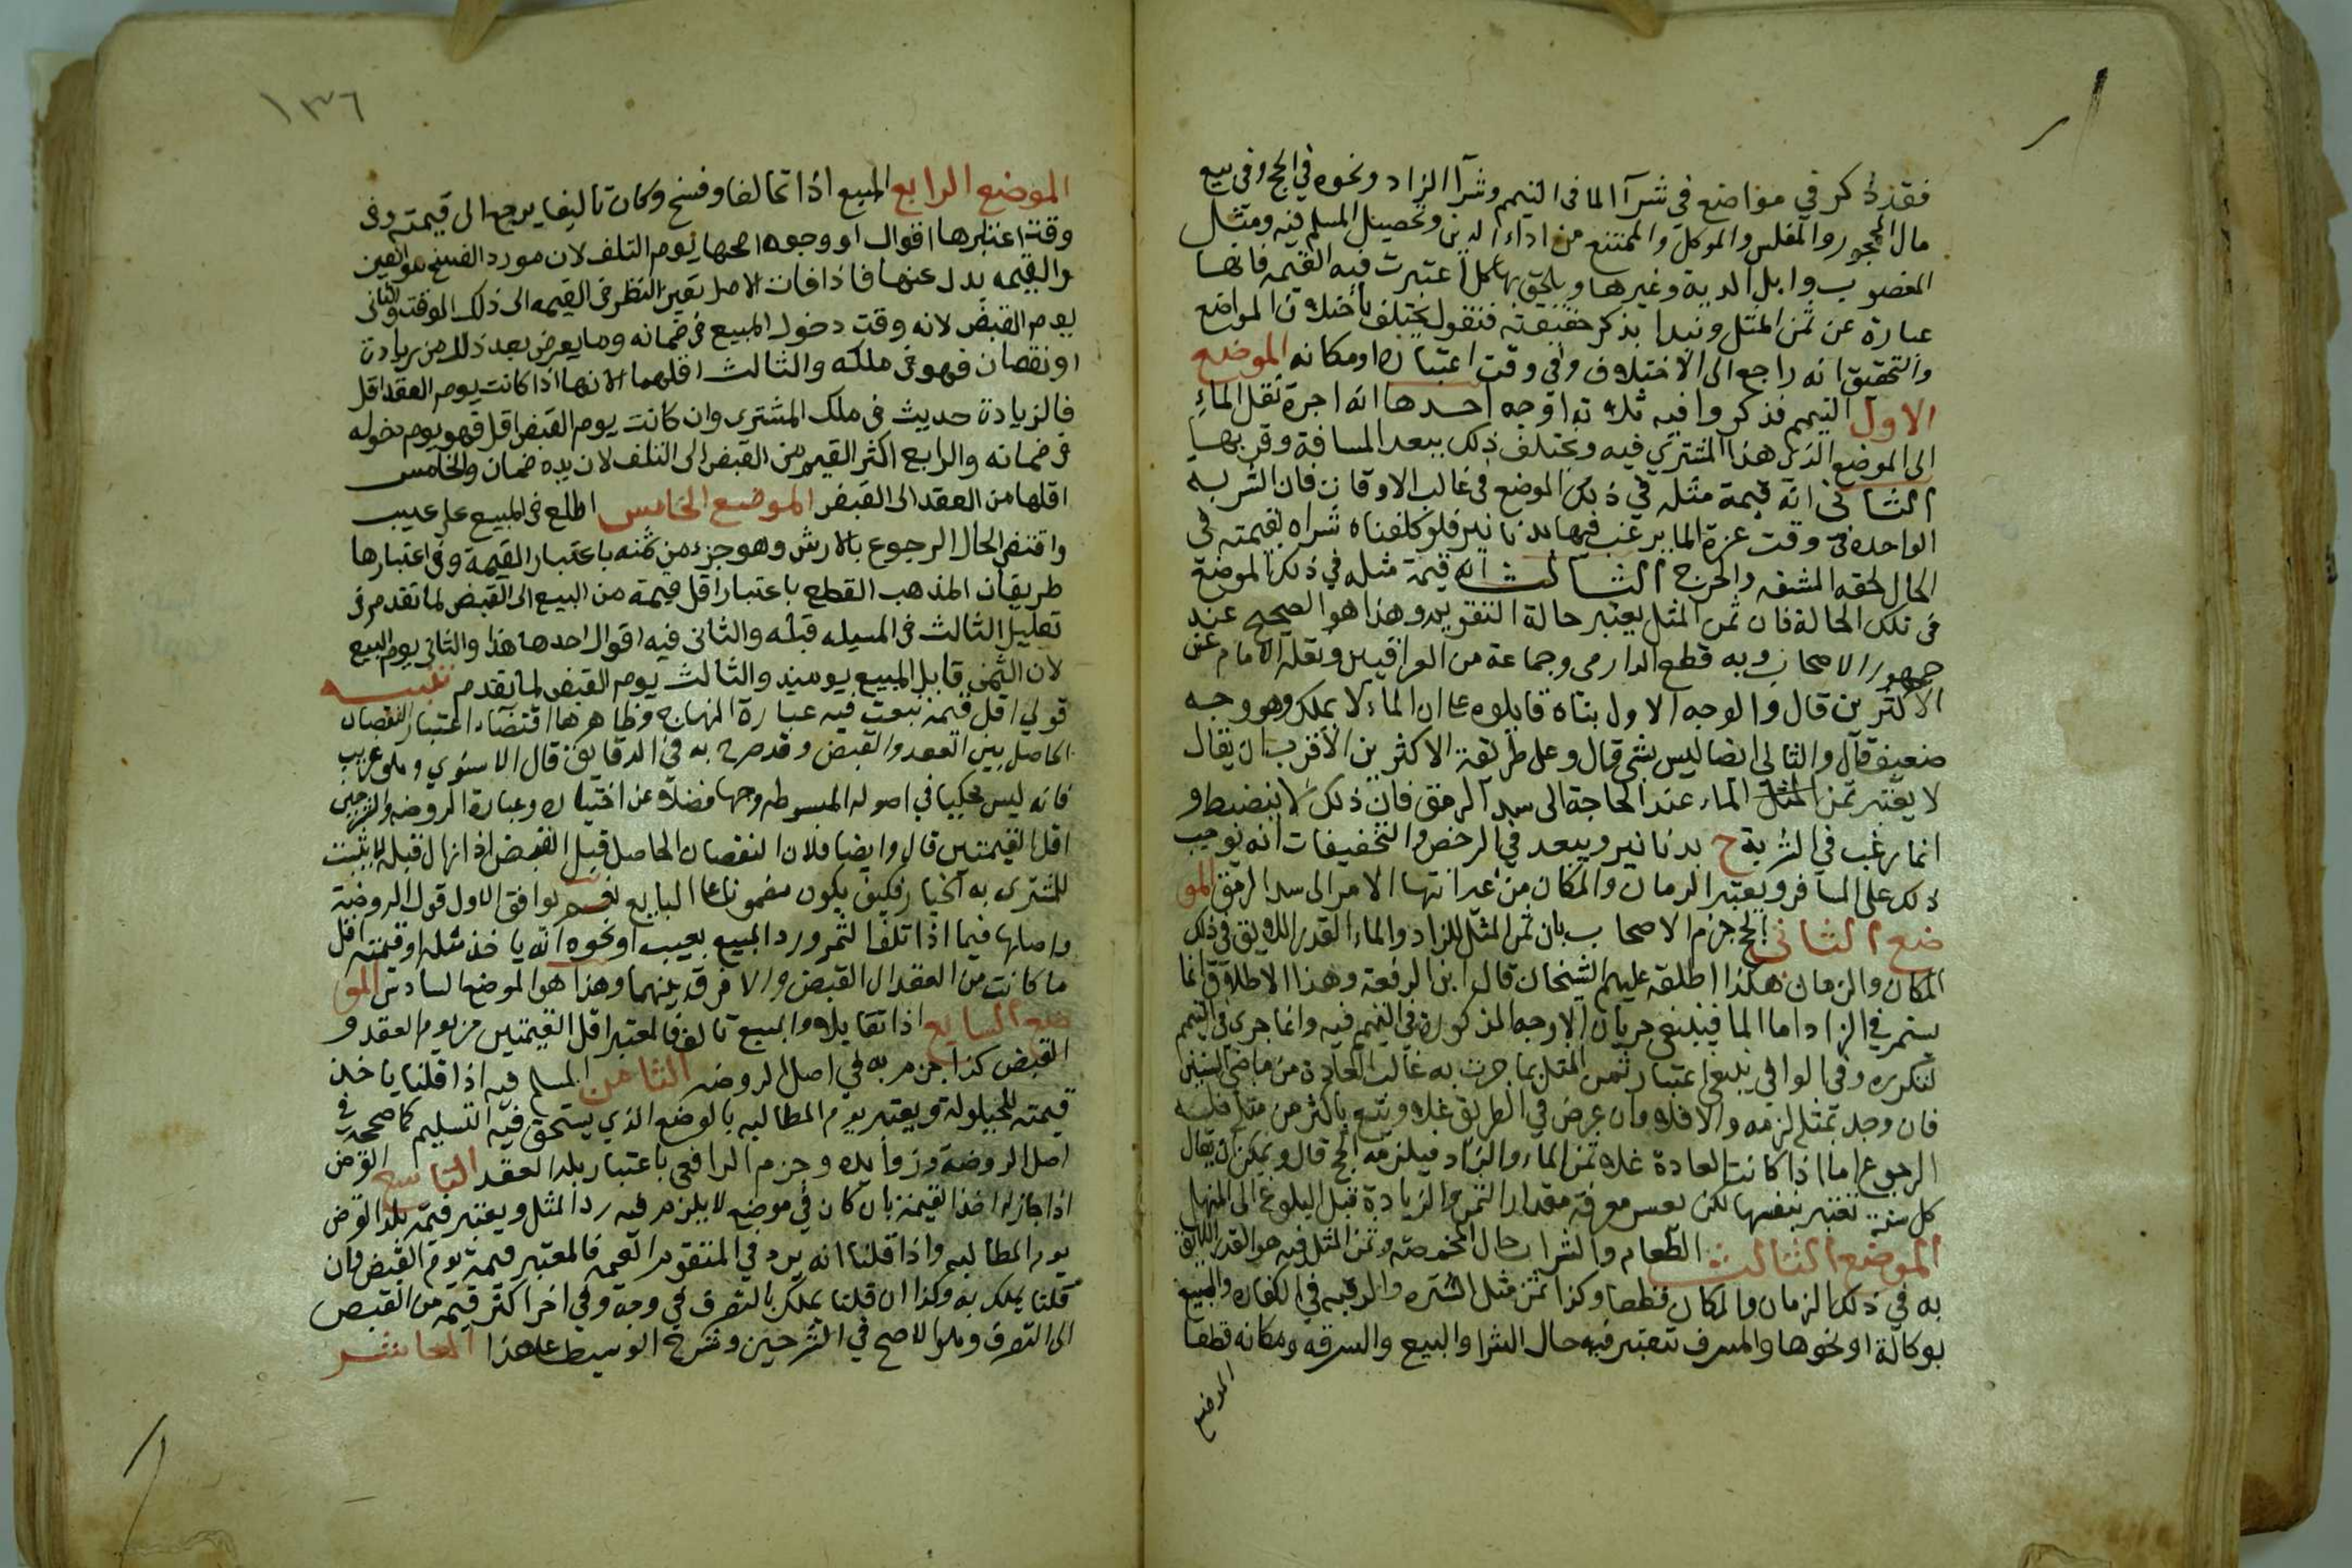 فقد ذكر في مواضع في شرآ الما في التيمم وشرآ الزاد ونحوه في الحج وفي بيع
مال المحجور والمفلس والموكل والممتنع من اداء الدين وتحصيل المسلم فيه ومثل
المغصوب وابل الدية وغيرها ويلحق بها كل ما اعتبرت فيه القيمه فانها
عبارة عن ثمن المثل ونبدا بذكر حقيقته فنقول يختلف باختلاف المواضع
والتحقيق انه راجع الى الاختلاف في وقت اعتباره او مكانه الموضع
الاول التيمم فذكروا فيه ثلاثة اوجه احدها انه اجرة نقل الماء
الى الموضع الذي هذا المشتري فيه ويختلف ذلك ببعد المسافة وقربها
الثاني انه قيمة مثله في ذلك الموضع في غالب الاوقات فان الشربة
الواحدة في وقت عزة الما يرغب فيها بدنانير فلو كلفناه شراه بقيمته في
الحال لحقه المشقه والحرج الثالث انه قيمة مثله في ذلك الموضع
في تلك الحالة فان ثمن المثل يعتبر حالة التقويم وهذا هو الصحيح عند
جمهور الاصحاب وبه قطع الدارمي وجماعة من العراقيين ونقله الامام عن
الاكثرين قال والوجه الاول بناه قايلوه على ان الماء لا يملك وهو وجه
ضعيف قال والثاني ايضا ليس بشي قال وعلى طريقة الاكثرين الاقرب ان يقال
لا يعتبر ثمن المثل الماء عند الحاجة الى سد الرمق فان ذلك لا ينضبط و
انما يرغب في الشربة ح بدنانير ويبعد في الرخص والتخفيفات انه يوجب
ذلك على المسافر ويعتبر الزمان والمكان من غير انتها الامر الى سد الرمق المو
ضع الثاني الحج جزم الاصحاب بان ثمن المثل للزاد والماء القدر اللايق في ذلك
المكان والزمان هكذا اطلقه عليهم الشيخان قال ابن الرفعة وهذا الاطلاق انما
يستمر في الزاد اما الما فينبغي جريان الاوجه المذكورة في التيمم فيه وانما جرى في التيمم
لتكرره وفي الوافي ينبغي اعتبار ثمن المثل بما جرت به غالب العادة من ماضي السنين
فان وجد بمثله لزمه والا فلا وان عرض في الطريق غلاء وبيع باكثر من مثله فليسه
الرجوع اما اذا كانت العادة غلاء ثمن الماء والزاد فيلزمه الحج قال ويمكن ان يقال
كل سنة تعتبر بنفسها لكن يعسر معرفة مقدار الثمن والزيادة قبل البلوغ الى المنهل
الموضع الثالث الطعام والشراب حال المخمصة وثمن المثل فيه هو القدر اللايق
به في ذلك الزمان والمكان قطعا وكذا ثمن مثل السترة والرقبه في الكفارة والمبيع
بوكالة او نحوها والمسرف تعتبر فيه حال الشرا والبيع والسرقه ومكانه قطعا
الموضع
١٣٦
الموضع الرابع المبيع اذا تحالفا وفسخ وكان تالفا يرجع الى قيمته وفي
وقت اعتبارها اقوال او وجوه اصحها يوم التلف لان مورد الفسخ هو العين
والقيمه بدل عنها فاذا فات الاصل تعين النظر في القيمه الى ذلك الوقت والثاني
يوم القبض لانه وقت دخول المبيع في ضمانه وما يعرض بعد ذلك من زيادة
او نقصان فهو في ملكه والثالث اقلهما لانها اذا كانت يوم العقد اقل
فالزيادة حديث في ملك المشتري وان كانت يوم القبض اقل فهو يوم دخوله
في ضمانه والرابع اكثر القيم من القبض الى التلف لان يده ضمان والخامس
اقلها من العقد الى القبض الموضع الخامس اطلع في المبيع على عيب
واقتضى الحال الرجوع بالارش وهو جزء من ثمنه باعتبار القيمة وفي اعتبارها
طريقان المذهب القطع باعتبار اقل قيمة من البيع الى القبض لما تقدم في
تعليل الثالث في المسيله قبله والثاني فيه اقوال احدها هذا والثاني يوم البيع
لان الثمن قابل المبيع يوميذ والثالث يوم القبض لما تقدم تنبيه
قولي اقل قيمة تبعت فيه عبارة المنهاج وظاهرها اقتضاء اعتبار النقصان
الحاصل بين العقد والقبض وقد صرح به في الدقايق قال الاسنوي وهو غريب
فانه ليس محكيا في اصوله المبسوطه وجها فضلا عن اختياره وعبارة الروضه والشرحين
اقل القيمتين قال وايضا فلان النقصان الحاصل قبل القبض اذا زال قبله لا يثبت
للمشتري به الخيار فكيف يكون مضمونا على البايع نعم يوافق الاول قول الروضة
واصلها فيما اذا تلف الثمن ورد المبيع بعيب او نحوه انه ياخذ مثله او قيمته اقل
ما كانت من العقد الى القبض والا فرق بينهما وهذا هو الموضع السادس المو
ضع السابع اذا تقايلا والمبيع تالف فالمعتبر اقل القيمتين من يوم العقد و
القبض كذا جزم به في اصل الروضه الثامن المسلم فيه اذا قلنا ياخذ
قيمته للحيلولة ويعتبر يوم المطالبه بالوضع الذي يستحق فيه التسليم كما صححه في
اصل الروضة وزوايده وجزم الرافعي باعتبار بلد العقد التاسع القرض
اذا جاز له اخذ القيمة بان كان في موضع لا يلزم فيه رد المثل ويعتبر قيمة بلد القرض
يوم المطالبه واذا قلنا انه يرد في المتقوم القيمه فالمعتبر قيمة يوم القبض فان
قلنا يملك به وكذا ان قلنا يملك بالتصرف في وجه وفي اخر اكثر قيمة من القبض
الى التصرف وهو الاصح في الشرحين وشرح الوسيط على هذا العاشر